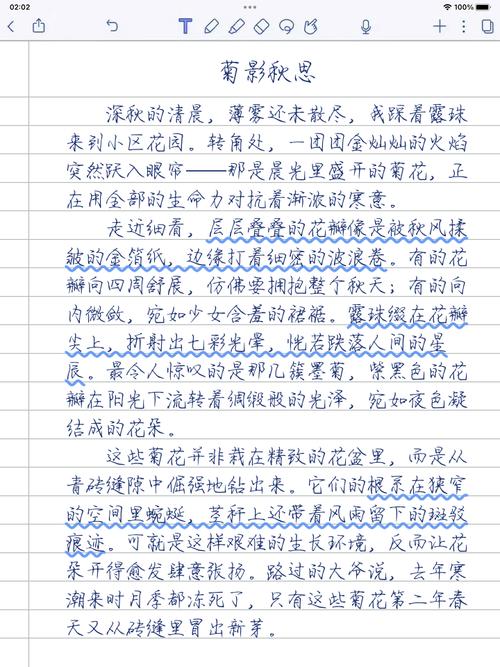 02:02
100%
T
菊影秋思
深秋的清晨，薄雾还未散尽，我踩着露珠
来到小区花园。转角处，一团团金灿灿的火焰
突然跃入眼帘——那是晨光里盛开的菊花，正
在用全部的生命力对抗着渐浓的寒意。
走近细看，层层叠叠的花瓣像是被秋风揉
皱的金箔纸，边缘打着细密的波浪卷。有的花
瓣向四周舒展，仿佛要拥抱整个秋天；有的向
内微敛，宛如少女含羞的裙裾。露珠缀在花瓣
尖上，折射出七彩光晕，恍若跌落人间的星
辰。最令人惊叹的是那几簇墨菊，紫黑色的花
瓣在阳光下流转着绸缎般的光泽，宛如夜色凝
结成的花朵。
这些菊花并非栽在精致的花盆里，而是从
青砖缝隙中倔强地钻出来。它们的根系在狭窄
的空间里蜿蜒，茎秆上还带着风雨留下的斑驳
痕迹。可就是这样艰难的生长环境，反而让花
朵开得愈发肆意张扬。路过的大爷说，去年寒
潮来时月季都冻死了，只有这些菊花第二年春
天又从砖缝里冒出新芽。